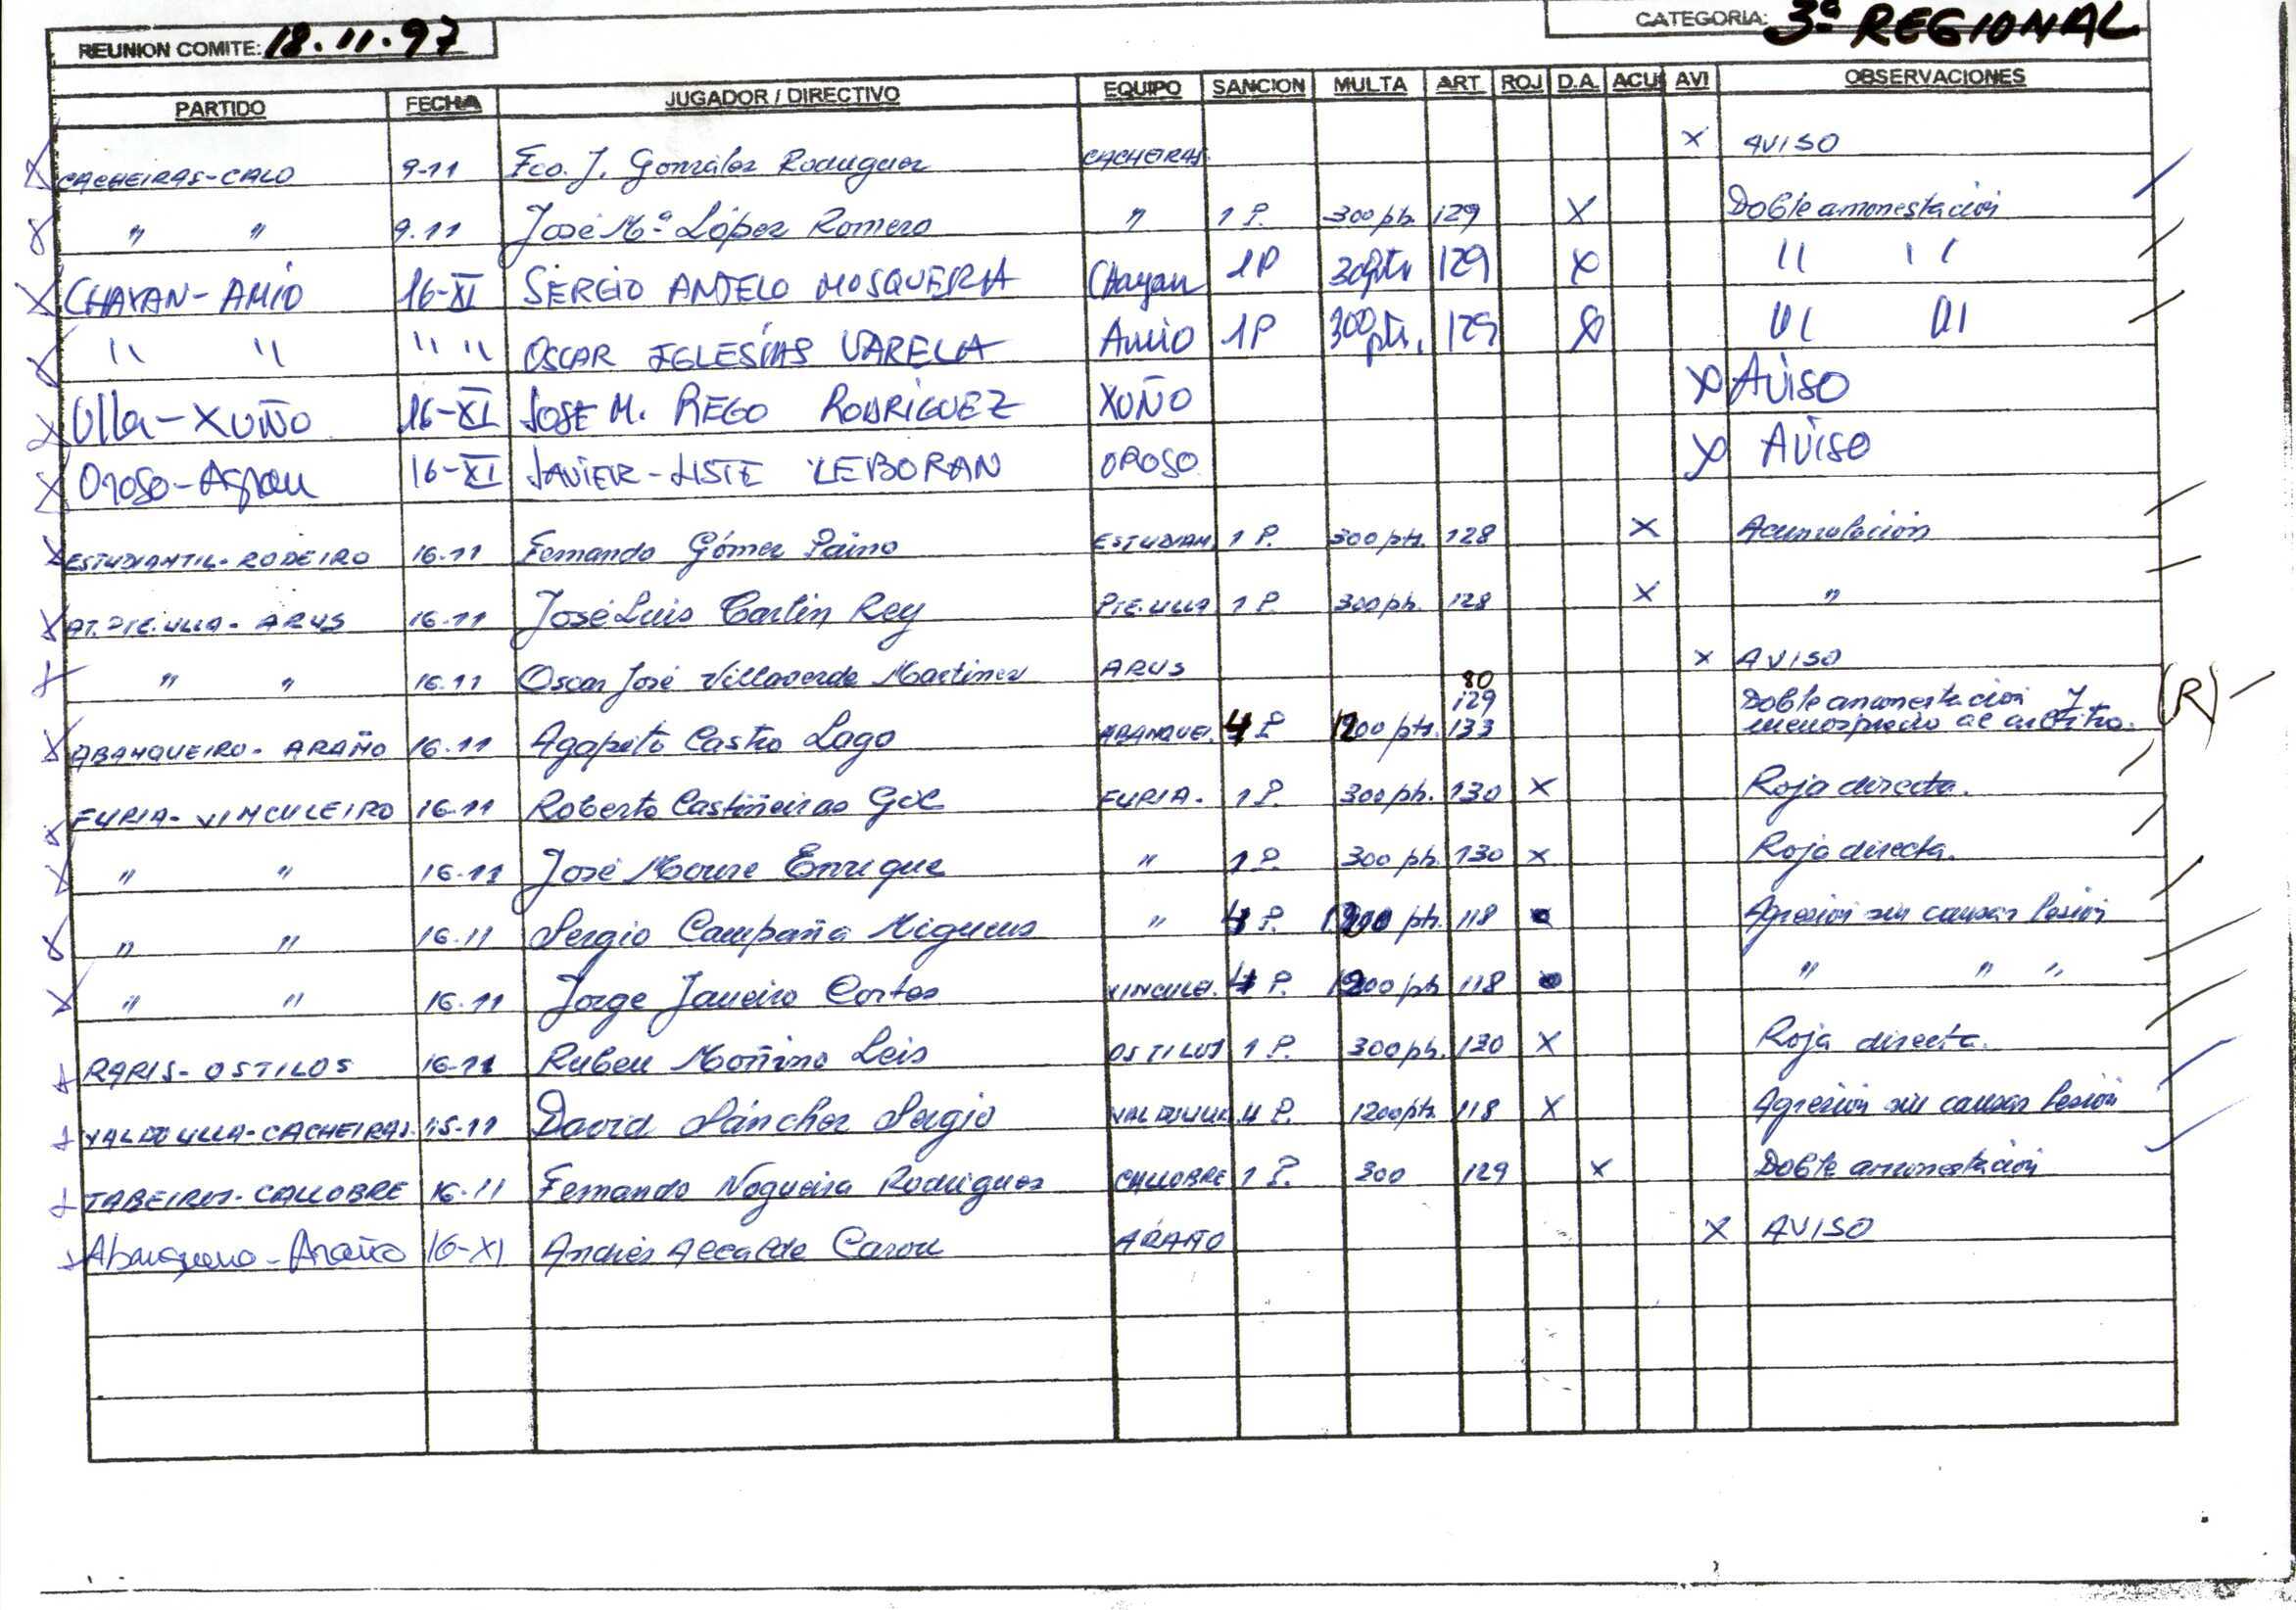 REUNION COMITE: 18.11.97 CATEGORIA: 3ª REGIONAL
PARTIDO FECHA JUGADOR / DIRECTIVO EQUIPO SANCION MULTA ART ROJ D.A. ACU AVI OBSERVACIONES
X CACHEIRAS-CALO 9-11 Fco. J. González Rodriguez CACHEIRAS X AVISO
X " " 9.11 José Mª López Romero " 1 P. 300 pts. 129 X Doble amonestación
X CHAYAN-AMIO 16-XI SERGIO ANTELO MOSQUEIRA Chayan 1P 300pts 129 X " "
X " " " " OSCAR IGLESIAS VARELA Amio 1P 300 pts. 129 X " "
X Ulla-XUÑO 16-XI JOSE M. REGO RODRIGUEZ XUÑO X AViSO
X Oroso- 16-XI JAVIER-LISTE LEBORAN OROSO X AViso
X ESTUDIANTIL-RODEIRO 16.11 Fernando Gómez Paino ESTUDIAN 1 P. 300 pts. 128 X Acumulación
X AT.PTE.ULLA-ARUS 16.11 José Luis Cartin Rey PTE.ULLA 1 P. 300 pts. 128 X "
X " " 16.11 Oscar José Villaverde Martinez ARUS X AVISO
X ABANQUEIRO-ARAÑO 16.11 Agapito Castro Lago ABANQUEI. 4 P. 1200 pts. 80 129 133 Doble amonestación y menosprecio al arbitro. (R)
X FURIA-VINCULEIRO 16-11 Roberto Castiñeiras Gil FURIA. 1 P. 300 pts. 130 X Roja directa.
X " " 16.11 José Moure Enrique " 1 P. 300 pts. 130 X Roja directa.
X " " 16.11 Sergio Campaña " 4 P. 1200 pts. 118 Agresión sin causar lesión
X " " 16.11 Jorge Janeiro Cortes VINCULEI. 4 P. 1200 pts 118 " " "
X RARIS-OSTILOS 16-11 Ruben Moñino Leis OSTILOS 1 P. 300 pts. 130 X Roja directa.
X VALDOULLA-CACHEIRAS. 15-11 David Sánchez Sergio VALDOULLA. 4 P. 1200 pts. 118 X Agresión sin causar lesión
X TABEIROS-CALLOBRE 16-11 Fernando Nogueira Rodriguez CALLOBRE 1 P. 300 129 X Doble amonestación
X Abanqueiro-Araño 16-XI Andrés Alcalde Carou ARAÑO X AVISO